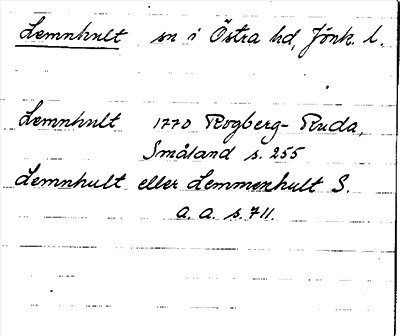 Lemnhult sn i Östra hd, Jönk. l.
Lemnhult 1770 Rogberg-Ruda,
Småland s. 255
Lemnhult eller Lemmenhult S.
a. a. s. 711.